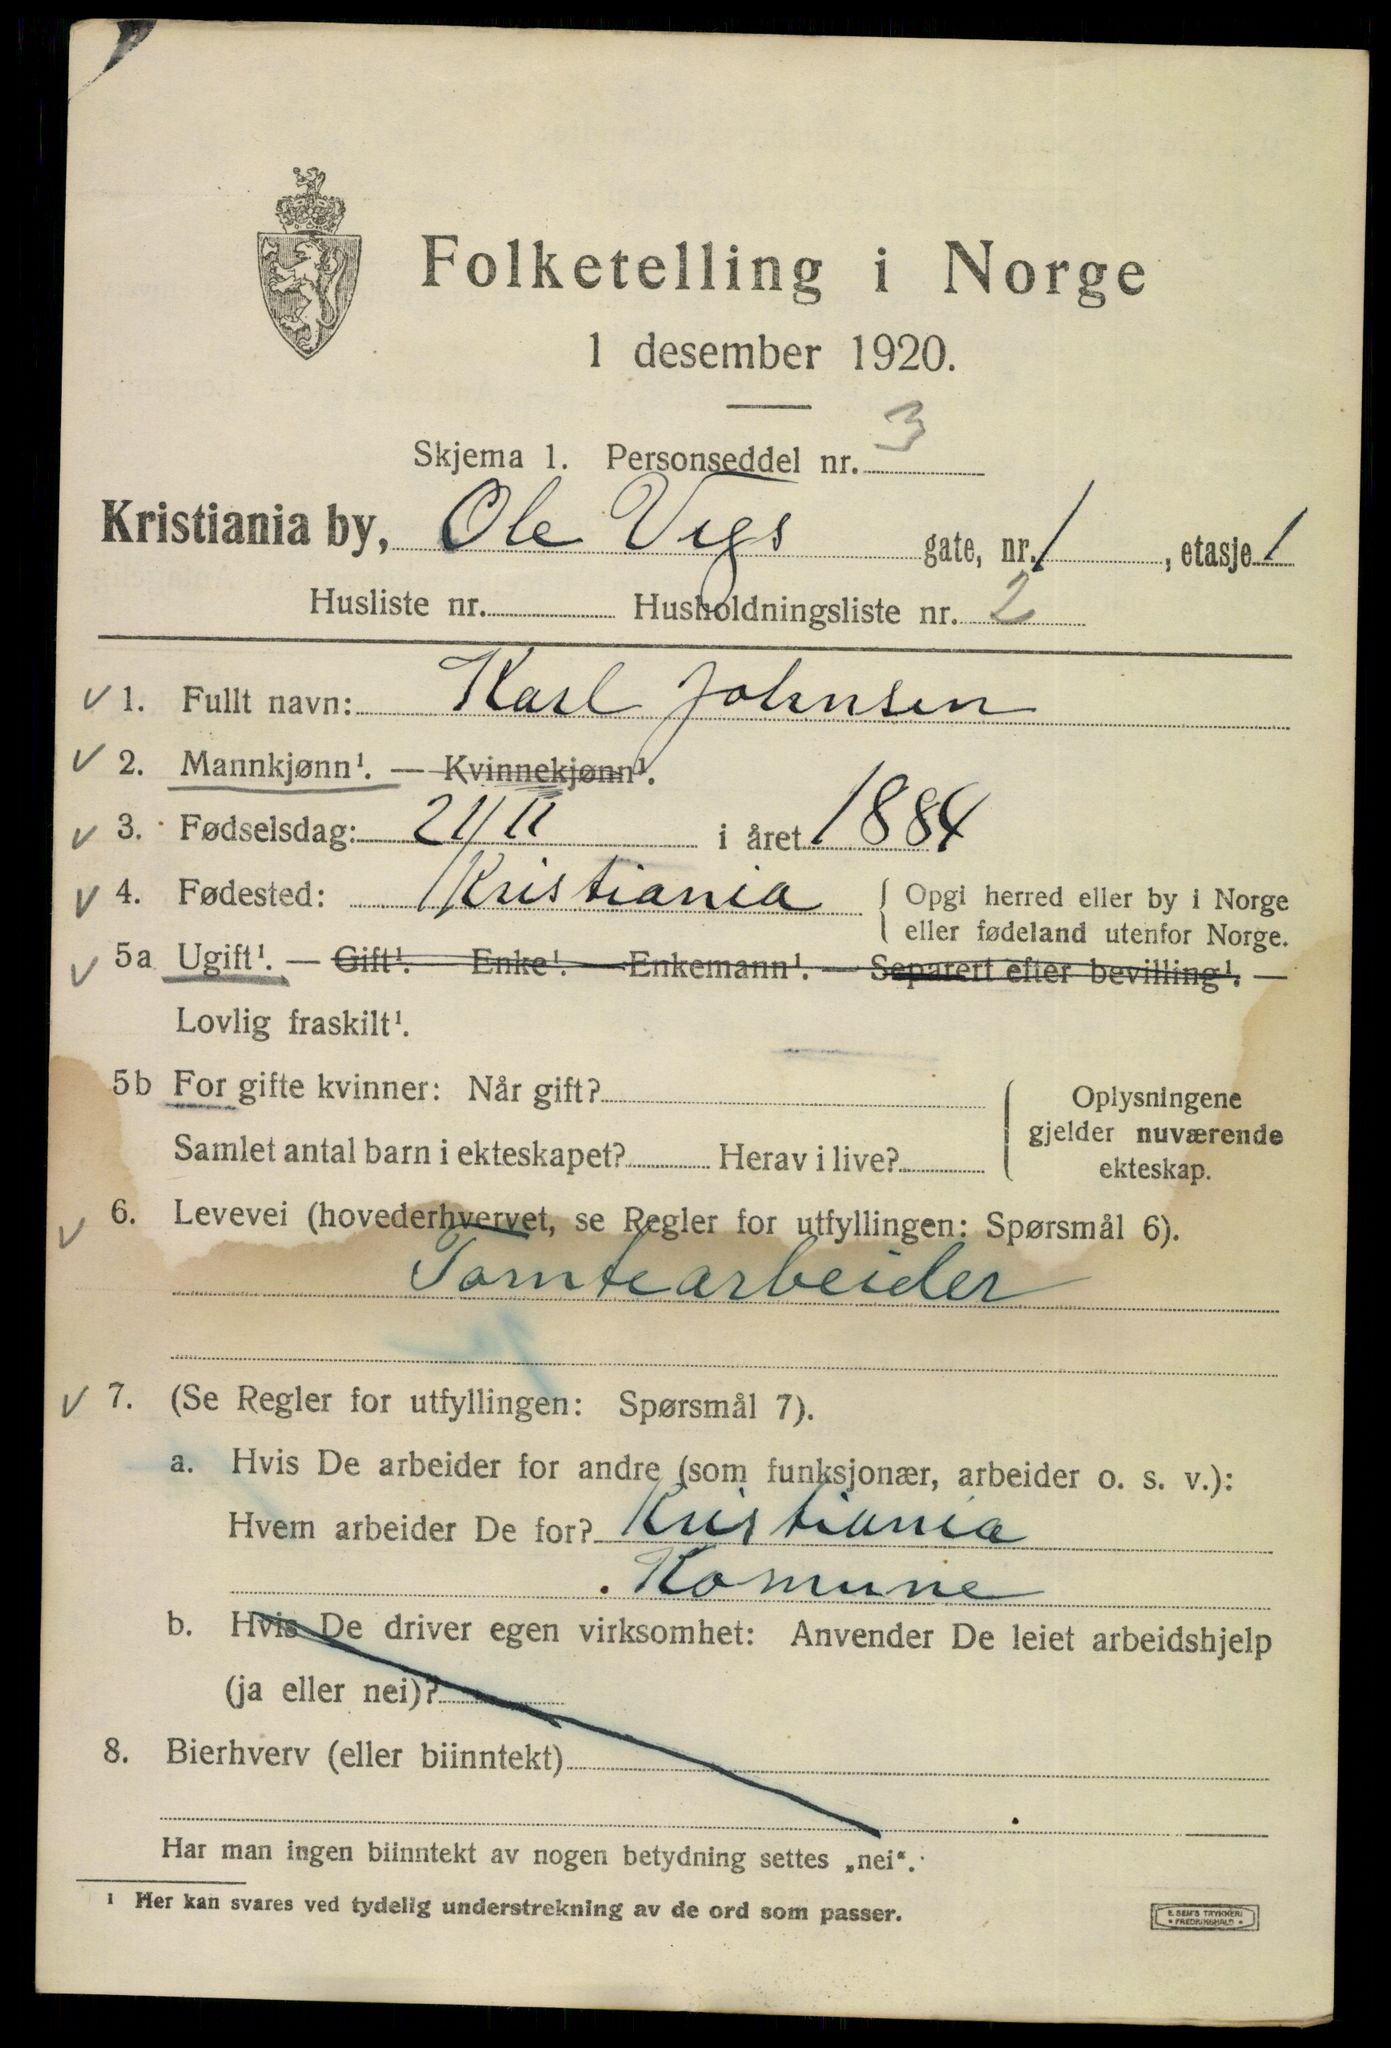 Folketelling i Norge
1 desember 1920.
Skjema 1. Personseddel nr. 3
Kristiania by, Ole Vigs gate, nr. 1, etasje 1
Husliste nr. Husholdningsliste nr. 2
1. Fullt navn: Karl Johnsen
2. Mannkjønn¹. — Kvinnekjønn¹.
3. Fødselsdag: 21/11 i året 1884
4. Fødested: Kristiania { Opgi herred eller by i Norge
eller fødeland utenfor Norge.
5a Ugift¹. — Gift¹. — Enke¹. — Enkemann¹. — Separert efter bevilling¹. —
Lovlig fraskilt¹.
5b For gifte kvinner: Når gift?
Samlet antal barn i ekteskapet? Herav i live?
Oplysningene
gjelder nuværende
ekteskap.
6. Levevei (hovederhvervet, se Regler for utfyllingen: Spørsmål 6).
Tomtearbeider
7. (Se Regler for utfyllingen: Spørsmål 7).
a. Hvis De arbeider for andre (som funksjonær, arbeider o. s. v.):
Hvem arbeider De for? Kristiania
Komune
b. Hvis De driver egen virksomhet: Anvender De leiet arbeidshjelp
(ja eller nei)?
8. Bierhverv (eller biinntekt)
Har man ingen biinntekt av nogen betydning settes „nei“.
¹ Her kan svares ved tydelig understrekning av de ord som passer.
E. SEM'S TRYKKERI
FREDRIKSHALD